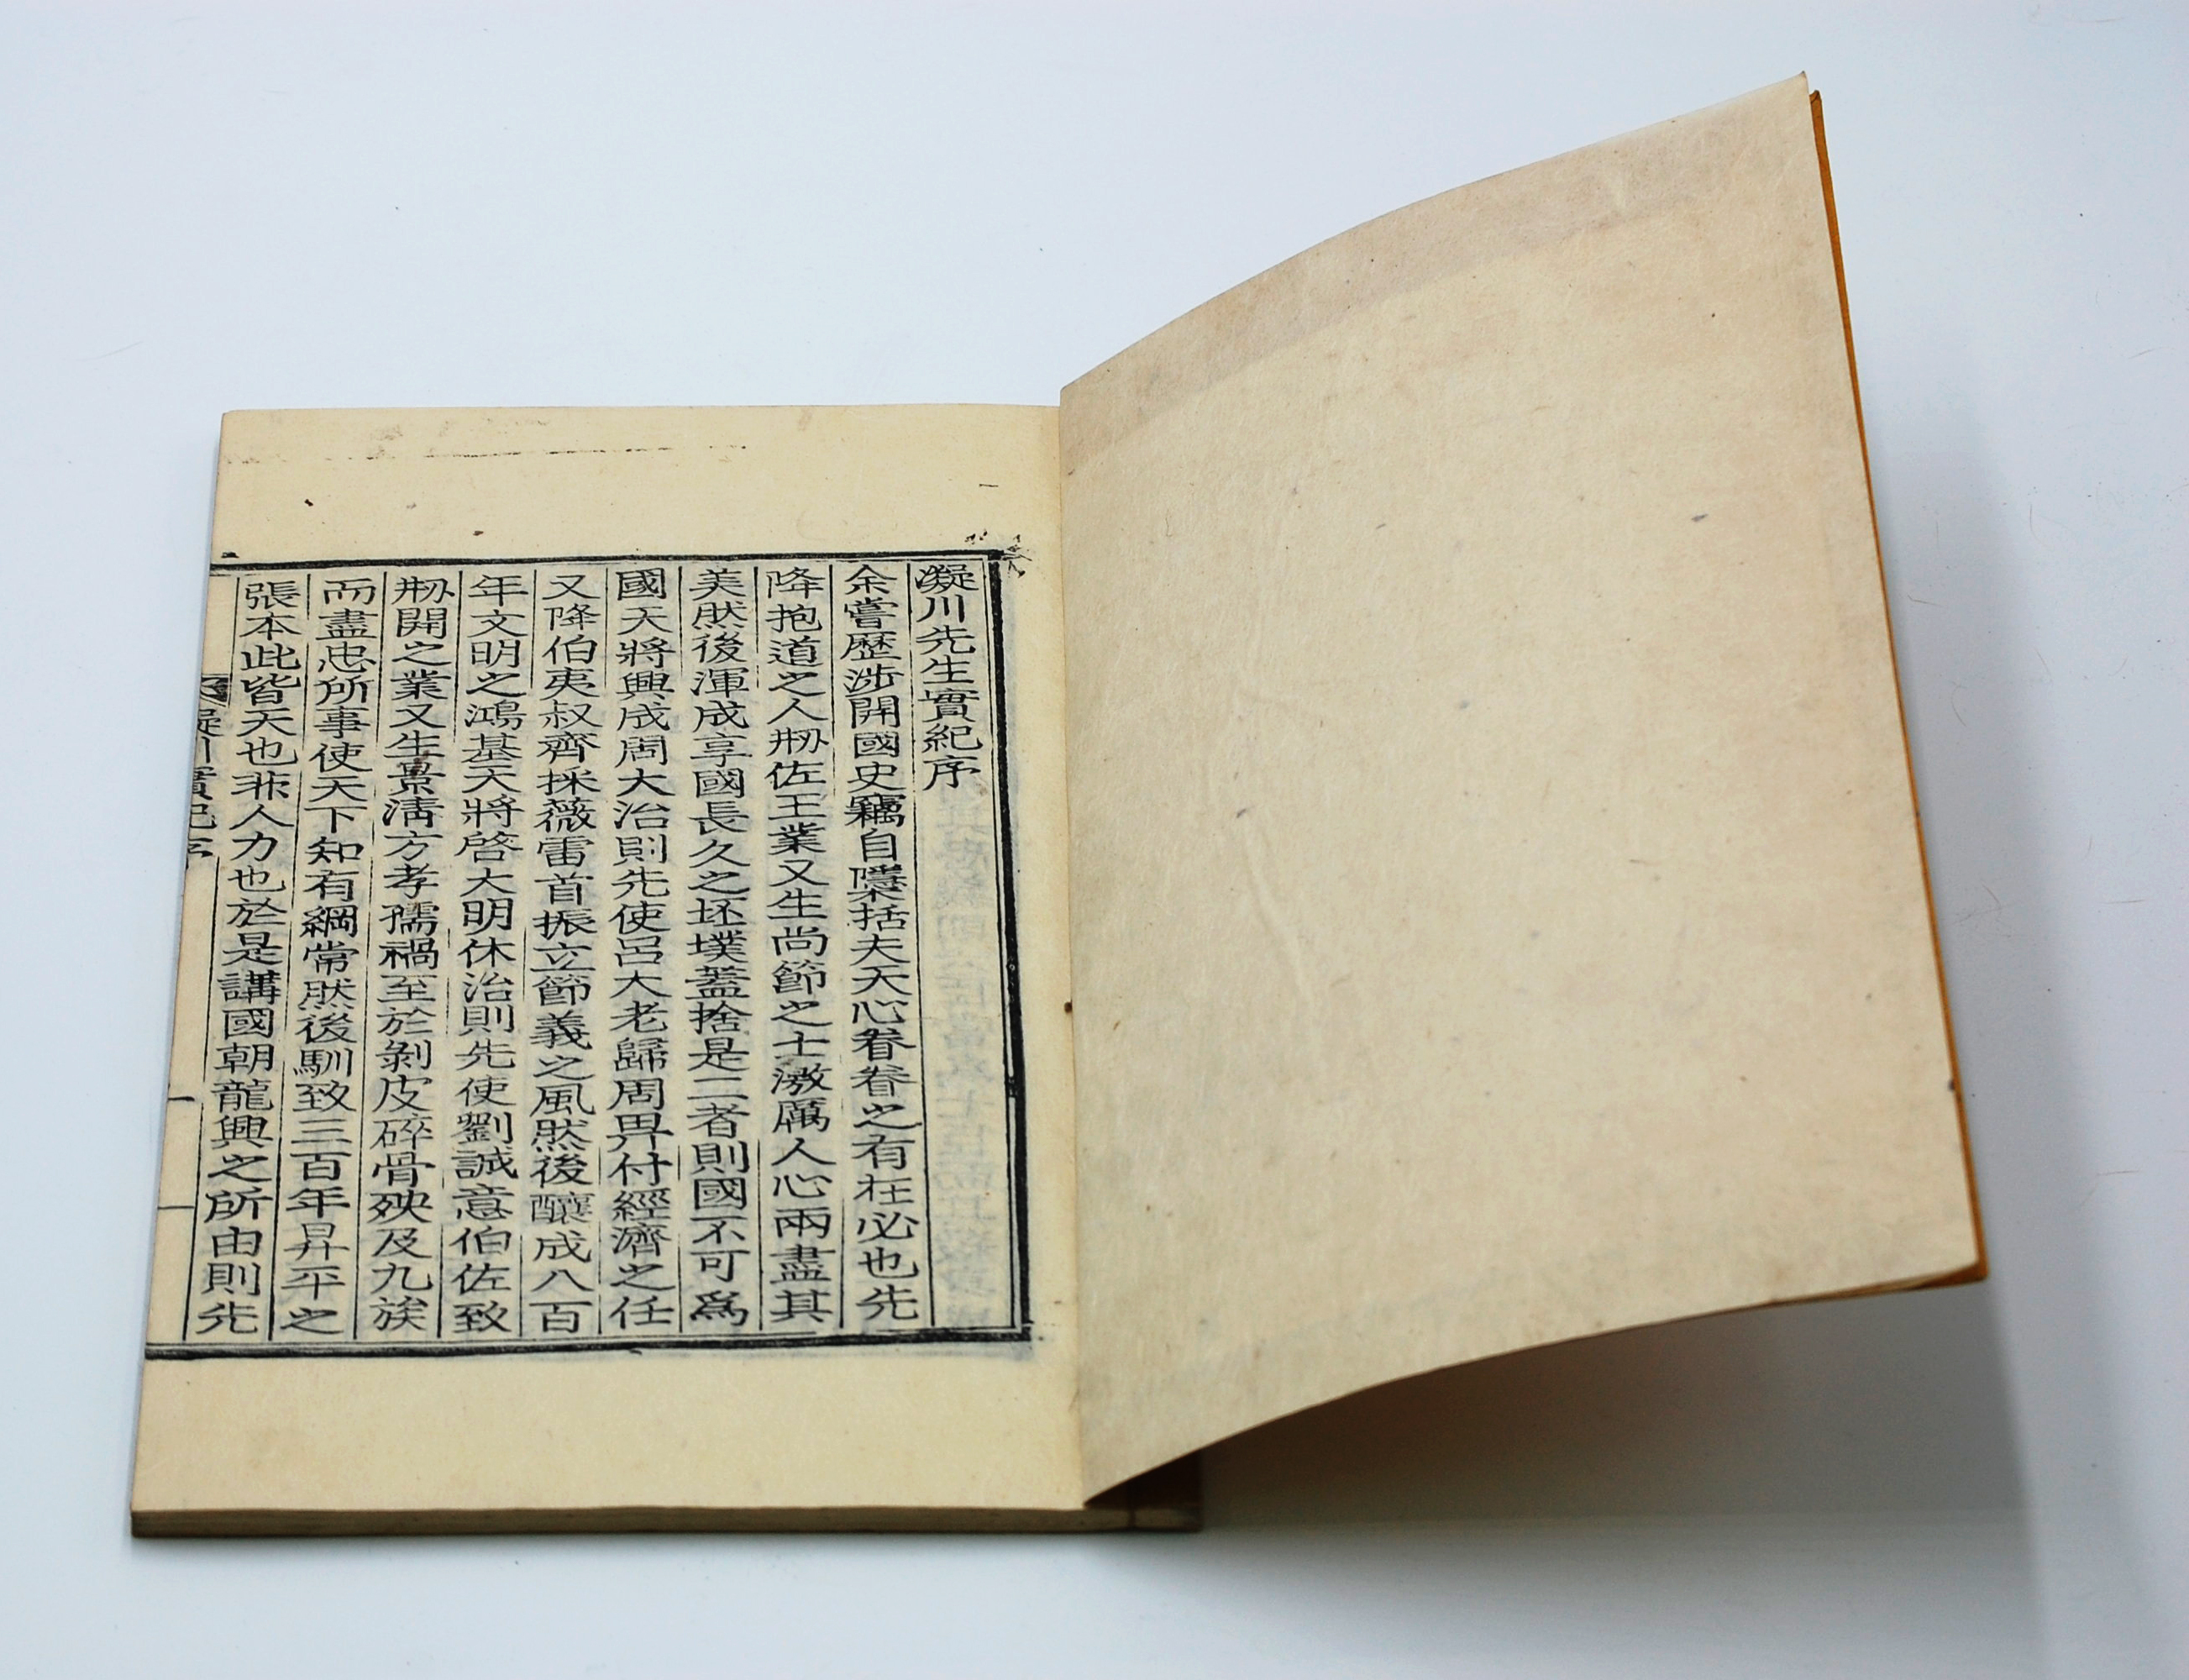 凝川先生實紀序
余嘗歷涉開國史竊自隱括夫天心眷眷之有在必也先
降抱道之人刱佐王業又生尚節之士激厲人心兩盡其
美然後渾成享國長久之坯墣蓋捨是二者則國不可爲
國天將興成周大治則先使呂大老歸周畀付經濟之任
又降伯夷叔齊採薇雷首振立節義之風然後釀成八百
年文明之鴻基天將啓大明休治則先使劉誠意伯佐致
刱開之業又生景清方孝孺禍至於剝皮碎骨殃及九族
而盡忠所事使天下知有綱常然後馴致三百年昇平之
張本此皆天也非人力也於是講國朝龍興之所由則先
凝川實紀序
一